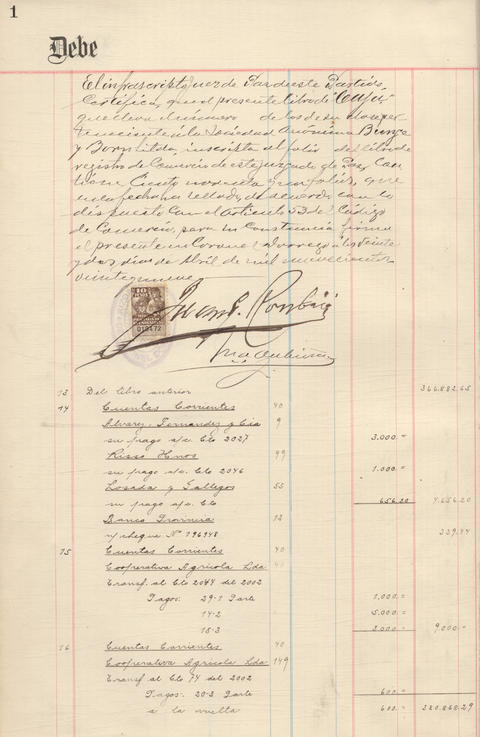 1
Debe
El infrascripto Juez de Paz de este Partido,
Certifica, que el presente libro de "Caja",
que lleva el número de los de su clase per
teneciente a la Sociedad Anónima Bunge
y Born Ltda, inscripta al folio del libro de
registro de Comercio de este juzgado de Paz, Con
tiene Ciento noventa y un folios, que
en la fecha he sellado, de acuerdo con lo
dispuesto con el artículo 53 del Código
de Comercio, para su Constancia firmo
el presente en Coronel Dorrego a los veinte
y dos dias de Abril de mil novecientos
veintinueve
010472
13 Del libro anterior 366.882.65
14 Cuentas Corrientes 40
Alvarez, Fernandez y Cia 9
su pago s/c. Cto 2027 3.000.=
Risso Hnos 49
su pago s/c. Cto 2046 1.000.=
Losada y Gallegos 55
su pago s/c. Cto 656.20 4.656.20
Banco Provincia 12
n/ cheque Nº 196948 329.44
15 Cuentas Corrientes 40
Cooperativa Agricola Lda
Transf. al Cto 2044 del 2002
Pagos: 29-1 Parte 1.000.=
14-2 5.000.=
15-3 3.000.= 9.000.=
16 Cuentas Corrientes 40
Cooperativa Agricola Lda 149
Transf al Cto 74 del 2002
Pagos: 20-3 Parte 600.=
a la vuelta 600.= 380.868.29